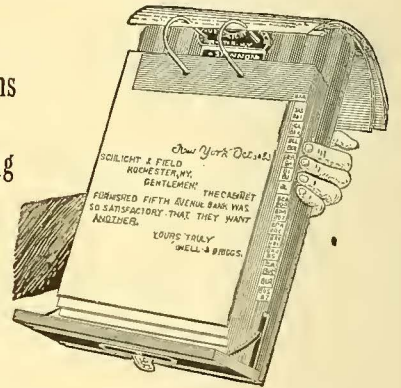 ns
g
New York Oct
SCHLICHT & FIELD
ROCHESTER, N.Y.
GENTLEMEN! THE CABINET
FURNISHED FIFTH AVENUE BANK WAS
SO SATISFACTORY THAT THEY WANT
ANOTHER.
YOURS TRULY
& DRIGGS.